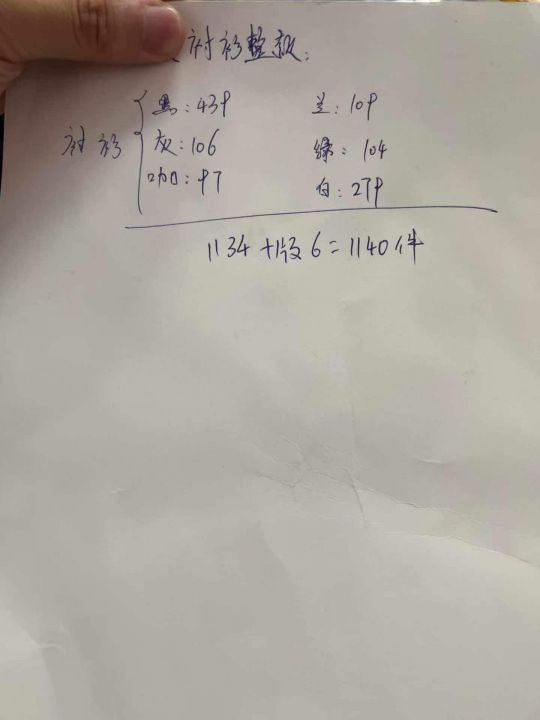 衬衫整
黑: 439 兰: 109
衬衫 灰: 106 绿: 104
咖: 97 白: 279
1134 + 版6 = 1140件